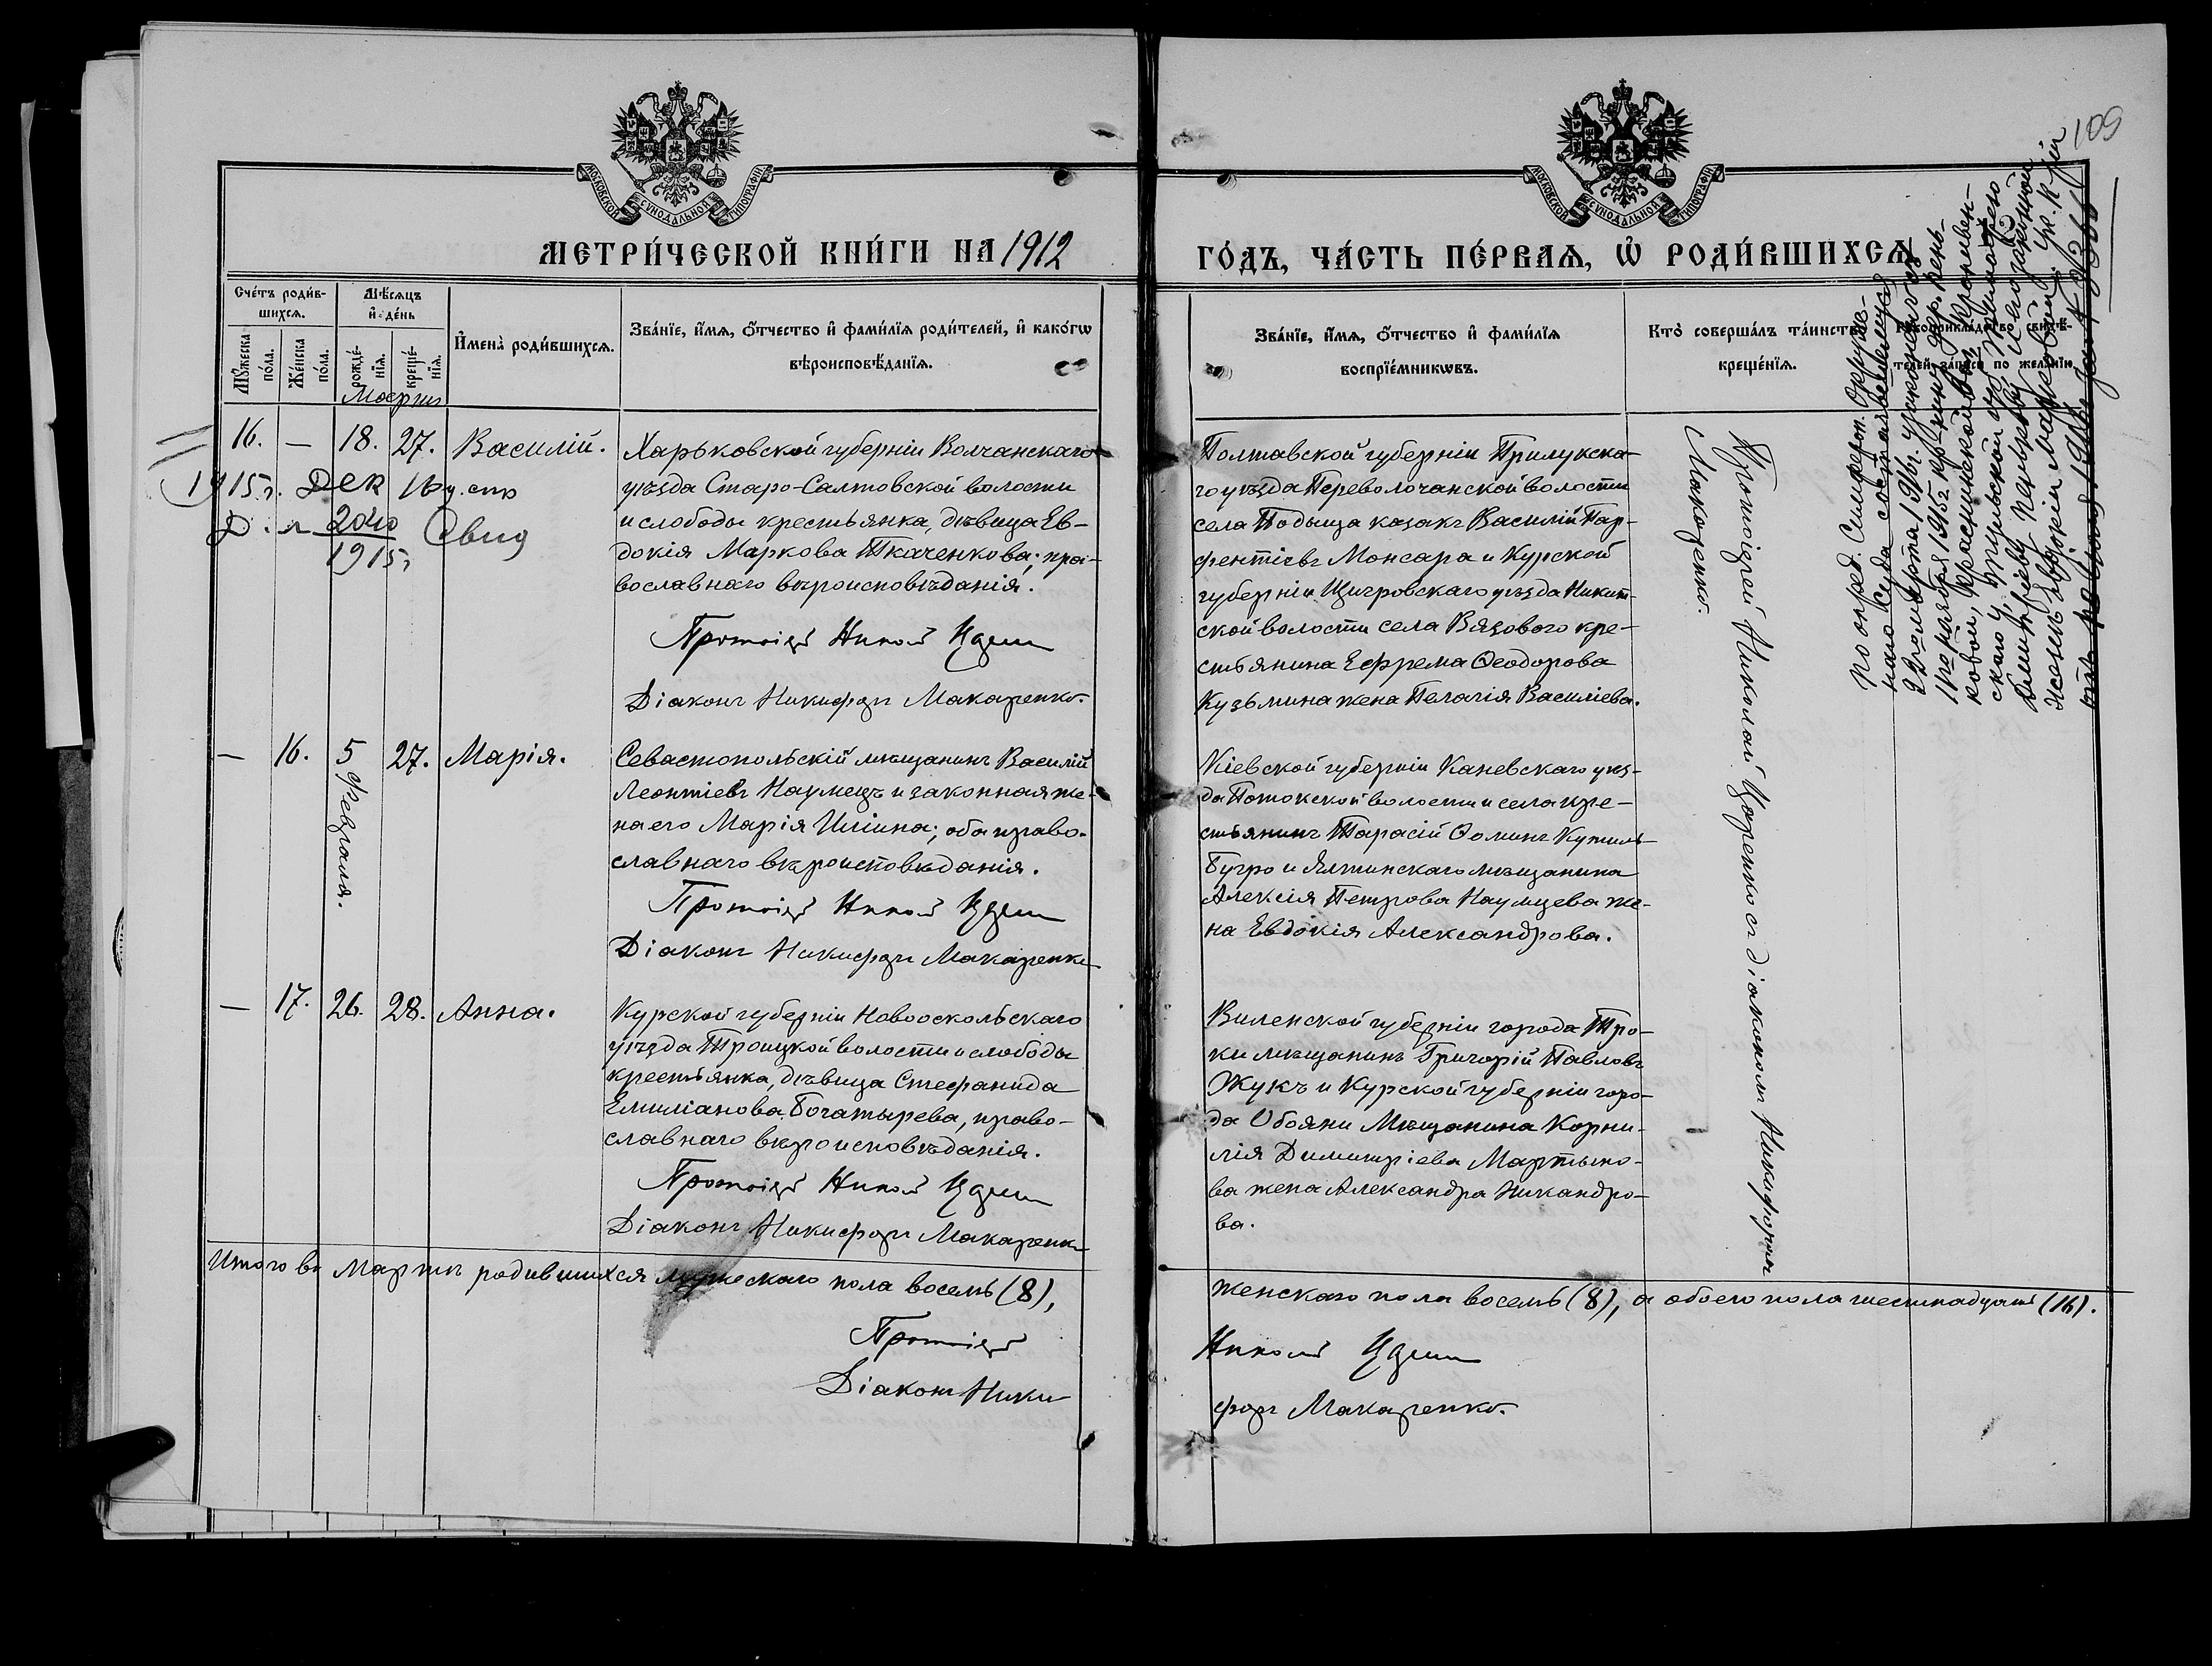 109
МОСКОВСКОЙ СУНОДАЛЬНОЙ ТИПОГРАФІИ
МОСКОВСКОЙ СУНОДАЛЬНОЙ ТИПОГРАФІИ
МЕТРИ́ЧЕСКОЙ КНИ́ГИ НА 1912
ГО́ДЪ, ЧА́СТЬ ПЕ́РВАѦ, Ѽ РОДИ́ВШИХСѦ
Сче́тъ роди́в-
шихсѧ.
Мꙋ́жеска
по́ла.
Же́нска
по́ла.
Мѣ́сѧцъ
и҆ де́нь
рожде́-
нїѧ.
креще́-
нїѧ.
И҆мена̀ роди́вшихсѧ.
Зва́нїе, и҆́мѧ, ѻ҆́тчество и҆ фами́лїѧ роди́телей, и҆ како́гѡ
вѣроисповѣ́данїѧ.
Зва́нїе, и҆́мѧ, ѻ҆́тчество и҆ фами́лїѧ
воспрїе́мникѡвъ.
Кто̀ соверша́лъ та́инство
креще́нїѧ.
Рꙋкоприкла́дство свидѣ́-
телей за́писи по жела́нїю.
Мартъ
16. — 18. 27. Василій.
1915 г. Дек 16
Д. № 2040
1915 г
Свид
Харьковской губерніи Волчанскаго
уѣзда Старо-Салтовской волости
и слободы крестьянка, дѣвица Ев-
докія Маркова Ткаченкова; пра-
вославнаго вѣроисповѣданія.
Протоіерей Николай
Діаконъ Никифоръ Макаренко.
Полтавской губерніи Прилукска-
го уѣзда Переволочанской волости
села Подыща казакъ Василій Пар-
фентіевъ Монсара и Курской
губерніи Щигровскаго уѣзда Никит-
ской волости села Вязового кре-
стьянина Ефрема Ѳеодорова
Кузьмина жена Пелагія Василіева.
Протоіерей Николай Цоренко съ діакономъ Никифоромъ
Макаренко.
по опред. Симфероп. Окруж-
наго Суда состоявшемуся
22го марта 1916 г. узаконенъ съ
11го ноября 1915 г. кр-нину дер. Рень-
ковой,
скаго у., Тульской губ. Тимофею
Дмитріеву и его законной
женѣ Евдокіи Марковой.
— 16. 5 27. Марія.
Февраля.
Севастопольскій мѣщанинъ Василій
Леонтіевъ Наумецъ и законная же-
на его Марія Иліина; оба право-
славнаго вѣроисповѣданія.
Протоіерей Николай
Діаконъ Никифоръ Макаренко
Кіевской губерніи Каневскаго уѣз-
да Потокской волости и села кре-
стьянинъ Тарасій Ѳоминъ Кутиль-
Бугро и Ялтинскаго мѣщанина
Алексія Петрова Наумцева же-
на Евдокія Александрова.
— 17. 26. 28. Анна.
Курской губерніи Новооскольскаго
уѣзда Троицкой волости и слободы
крестьянка, дѣвица Стефанида
Емиліанова Богатырева, право-
славнаго вѣроисповѣданія.
Протоіерей Николай
Діаконъ Никифоръ Макаренко
Виленской губерніи города Тро-
ки мѣщанинъ Григорій Павловъ
Жукъ и Курской губерніи горо-
да Обояни Мѣщанина Корни-
лія Димитріева Мартыно-
ва жена Александра Никандро-
ва.
Итого въ Мартѣ родившихся мужескаго пола восемь (8),
женскаго пола восемь (8), а обоего пола шестнадцать (16).
Протоіерей
Николай
Діаконъ Ники-
форъ Макаренко.